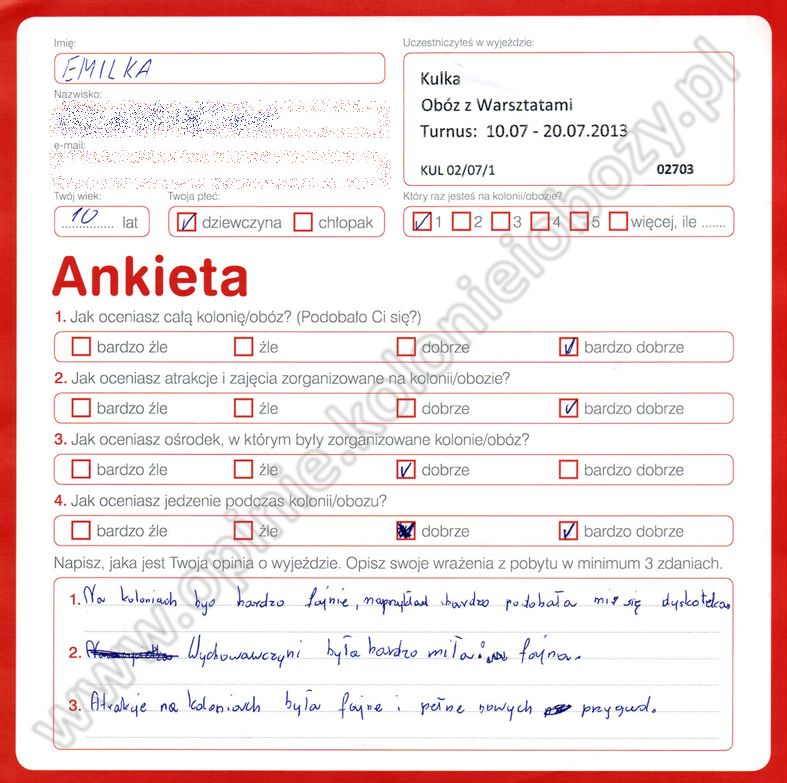 Imię:
EMILKA
Nazwisko:
e-mail:
Twój wiek:
10 lat
Twoja płeć:
dziewczyna chłopak
Uczestniczyłeś w wyjeździe:
Kulka
Obóz z Warsztatami
Turnus: 10.07 - 20.07.2013
KUL 02/07/1 02703
Który raz jesteś na kolonii/obozie?
1 2 3 4 5 więcej, ile .......
Ankieta
1. Jak oceniasz całą kolonię/obóz? (Podobało Ci się?)
bardzo źle źle dobrze bardzo dobrze
2. Jak oceniasz atrakcje i zajęcia zorganizowane na kolonii/obozie?
bardzo źle źle dobrze bardzo dobrze
3. Jak oceniasz ośrodek, w którym były zorganizowane kolonie/obóz?
bardzo źle źle dobrze bardzo dobrze
4. Jak oceniasz jedzenie podczas kolonii/obozu?
bardzo źle źle dobrze bardzo dobrze
Napisz, jaka jest Twoja opinia o wyjeździe. Opisz swoje wrażenia z pobytu w minimum 3 zdaniach.
1. Na koloniach byo bardzo fajnie, naprykład bardzo podobała mi się dyskoteka.
2. Wychowawczyni była bardzo miła i fajna.
3. Atrakcje na koloniach była fajne i pełne nowych przygud.
www.opinie.kolonieiobozy.pl